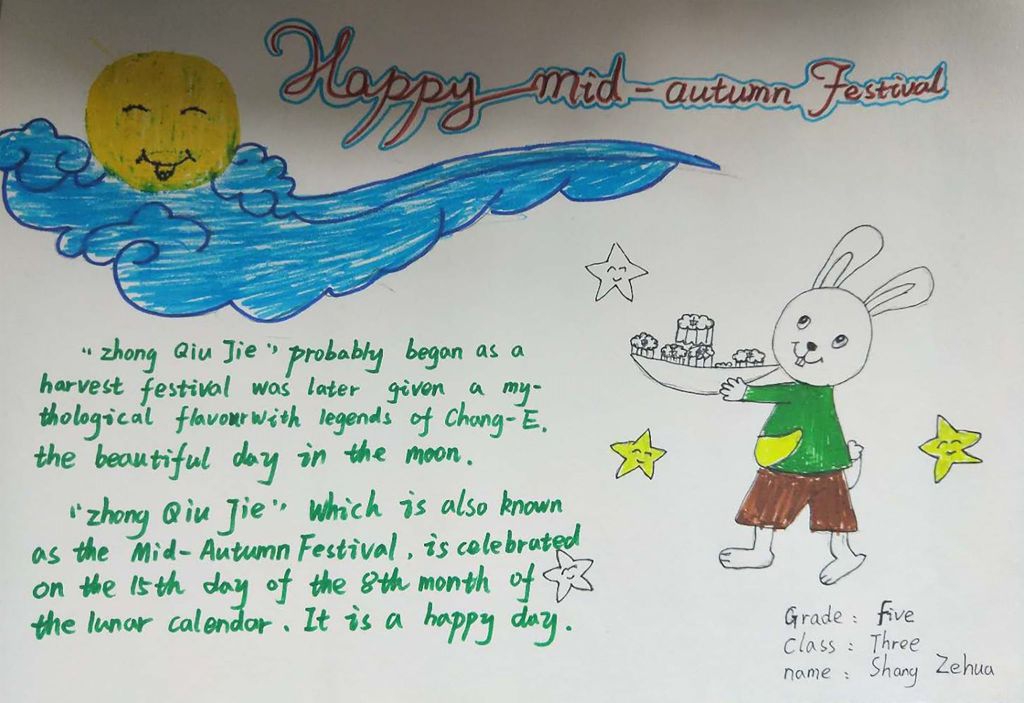 Happy mid-autumn Festival
"zhong Qiu Jie" probably began as a
harvest festival was later given a my-
thological flavour with legends of Chang-E.
the beautiful day in the moon.
"zhong Qiu Jie" Which is also known
as the Mid-Autumn Festival, is celebrated
on the 15th day of the 8th month of
the lunar calendar. It is a happy day.
Grade: five
Class: Three
name: Shang Zehua